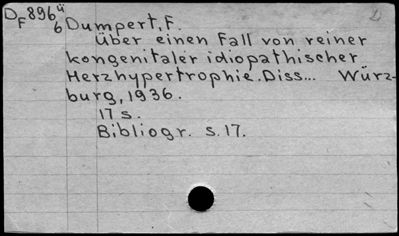 DF896ü D
6 Dumpert, F.
Über einen Fall von reiner
kongenitaler idiopathischer
Herzhypertrophie. Diss... Würz-
burg, 1936.
17 s.
Bibliogr. s. 17.